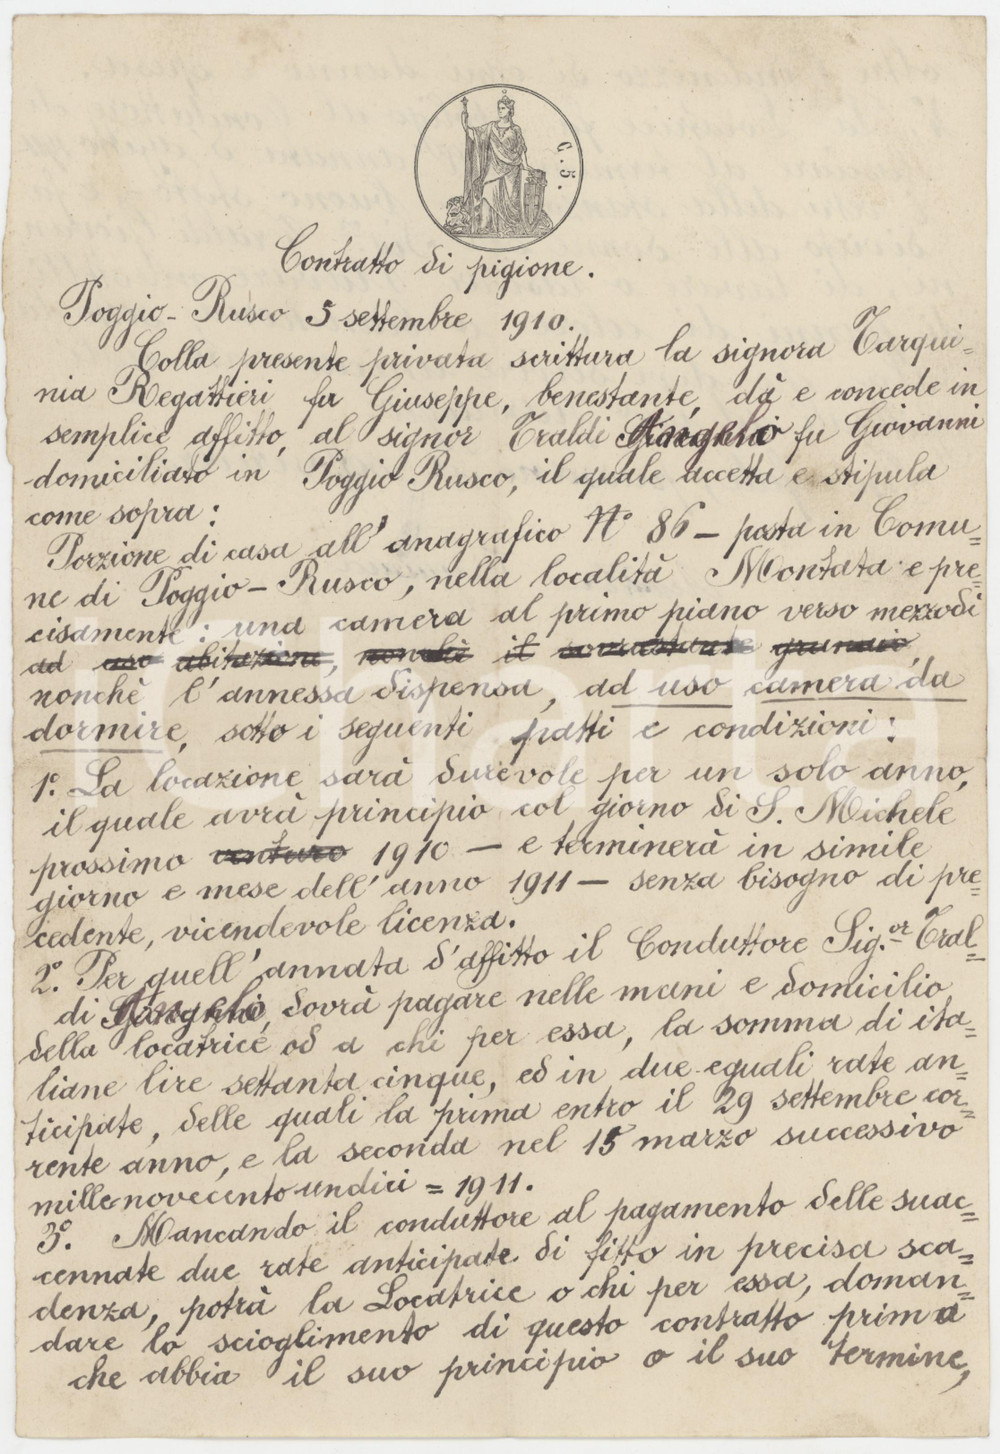 C. 5.
Contratto di pigione.
Poggio-Rusco 5 settembre 1910.
Colla presente privata scrittura la signora Tarqui=
nia Regattieri fu Giuseppe, benestante, dà e concede in
semplice affitto, al signor Traldi fu Giovanni
domiciliato in Poggio Rusco, il quale accetta e stipula
come sopra:
Porzione di casa all'anagrafico N° 86 - posta in Comu=
ne di Poggio-Rusco, nella località Montata e pre=
cisamente: una camera al primo piano verso mezzodì
ad uso abitazione, nonchè il sovrastante granaio,
nonchè l'annessa dispensa, ad uso camera da
dormire, sotto i seguenti patti e condizioni:
1.° La locazione sarà durevole per un solo anno,
il quale avrà principio col giorno di S. Michele
prossimo venturo 1910 - e terminerà in simile
giorno e mese dell'anno 1911 - senza bisogno di pre=
cedente, vicendevole licenza.
2.° Per quell'annata d'affitto il Conduttore Sig.or Tral=
di dovrà pagare nelle mani e domicilio
della locatrice od a chi per essa, la somma di ita=
liane lire settanta cinque, ed in due eguali rate an=
ticipate, delle quali la prima entro il 29 settembre cor=
rente anno, e la seconda nel 15 marzo successivo
mille novecento undici = 1911.
3.° Mancando il conduttore al pagamento delle suac=
cennate due rate anticipate di fitto in precisa sca=
denza, potrà la Locatrice o chi per essa, doman=
dare lo scioglimento di questo contratto prima
che abbia il suo principio o il suo termine,